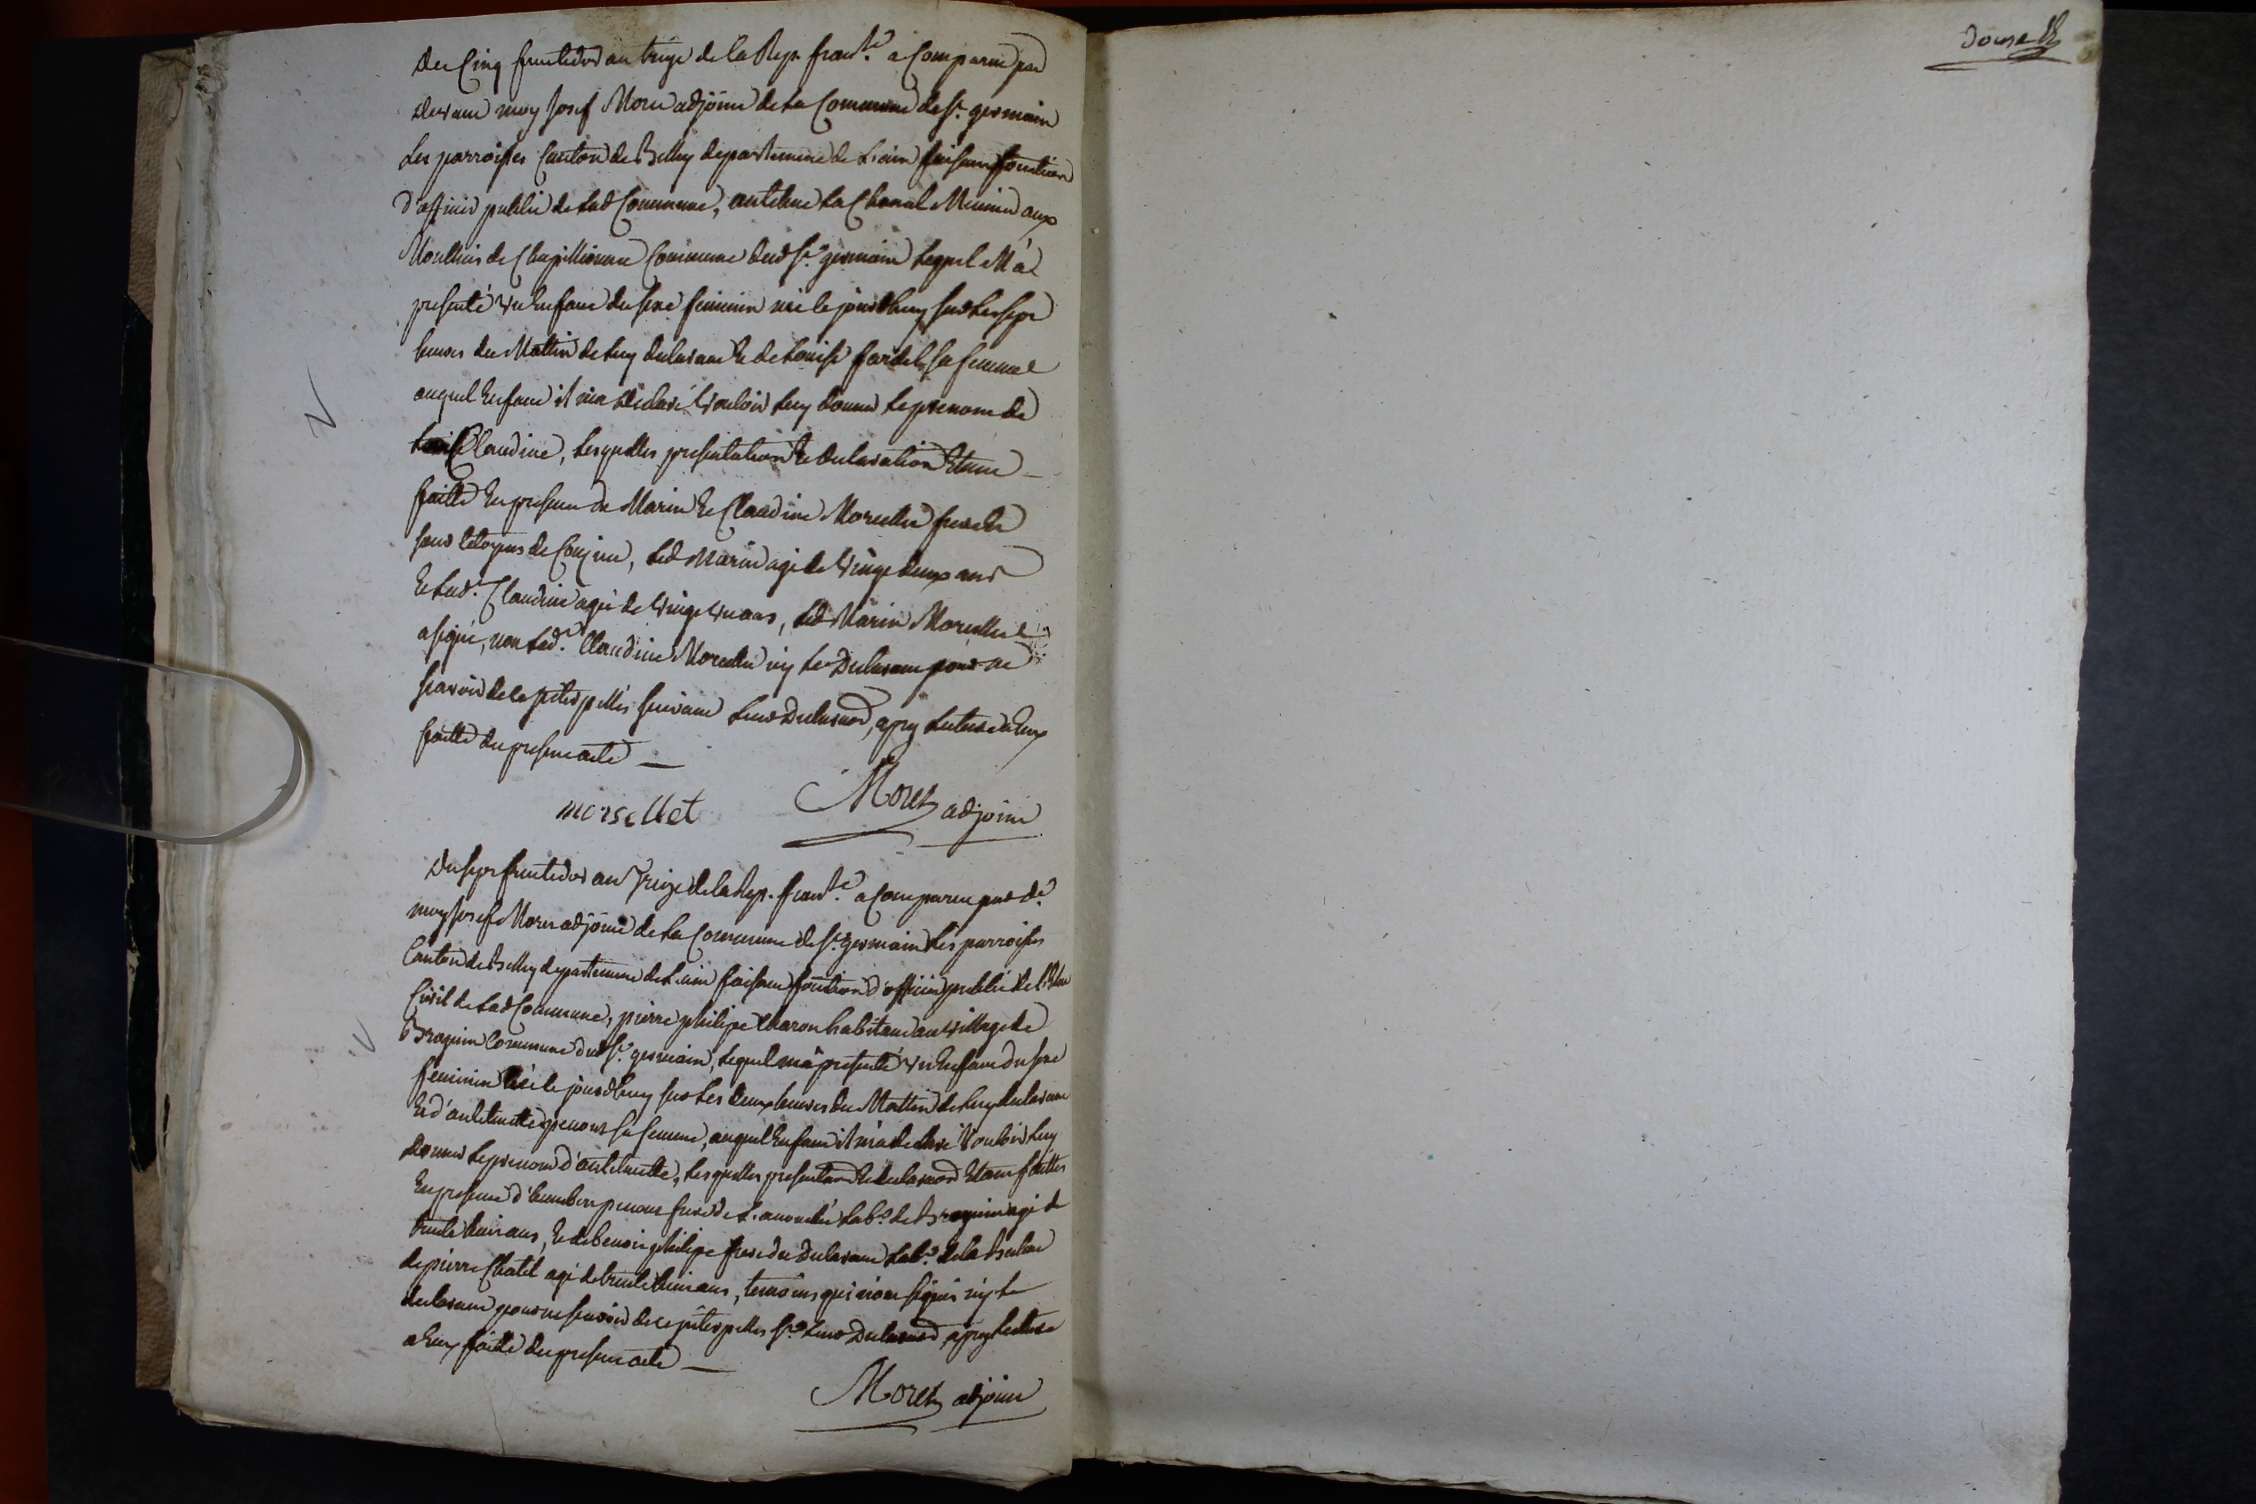 Du Cinq fructidor an treize de la Rep. franse. a Comparu par
devant moy Josef Moret adjoint de la Commune de St. germain
Les parroisses Canton de Belley departement de L'ain faisant fonction
d'officier public de lad Commune, antelme La Chanal Meunier aux
Moullins de Commune dud St. germain Lequel M'a
presenté un Enfant du sexe feminin né le jourdhuy sur les sept
heures du Mattin de luy declarant Et de Louise sa femme
auquel Enfant il m'a declaré vouloir luy donner le prenom de
Claudine, Lesquelles presentation Et declaration Etant
faitte En presence de Marin Et Claudine Morcellet frere Et
soeur de Conjieu, led Marin agé de vingt deux ans
Et lade. Claudine agée de vingt un ans, led Marin Morcellet
a signé, non lade. Claudine Morcellet ny le Declarant pour ne
scavoir de ce suivant leur Declaraon, apres lecture a Eux
faitte du present acte
morsellet Moret adjoint
Du sept fructidor an treize de la Rep. franse. a Comparu par dt.
moy Josef Moret adjoint de la Commune de St. germain Les parroisses
Canton de Belley departement de L'ain faisant fonction d'officier public de l'Etat
Civil de lad Commune, pierre philipe habitant au village de
Brognin Commune dud St. germain, Lequel m'a presenté un Enfant du sexe
feminin né le jourdhuy sur les deux heures du Mattin de luy declarant
Et d'antelmette penont sa femme, auquel Enfant il m'a declaré Vouloir luy
donner le prenom d'antelmette, Lesquelles presentaon Et declaraon Etant faittes
En presence d'humbert penont frere de L'accouchée labr. de Brognin agé de
trente huit ans, Et de benoit philipe frere du Declarant labr. de la
de pierre Chatel agé de trente huit ans, temoins qui n'ont signés ny le
declarant pour ne scavoir de ce st. leur Declaraon, apres lecture
a Eux faitte du present acte
Moret adjoint
douze